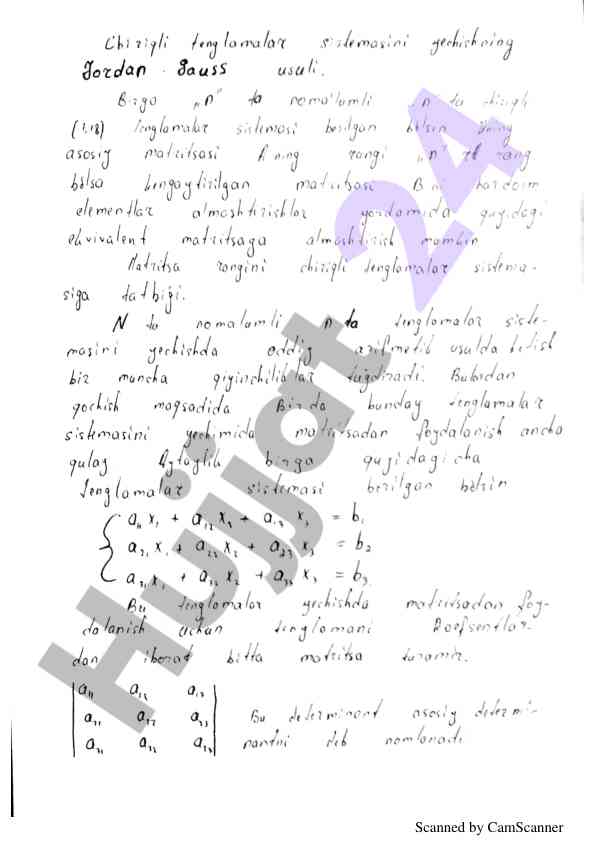 Chiziqli tenglamalar sistemasini yechishning
Jordan - Gauss usuli.
Bizga „n" ta noma'lumli „n" ta chiziqli
(1.18) tenglamalar sistemasi berilgan bo'lsin Uning
asosiy matritsasi A ning rangi „n" rang
bo'lsa kengaytirilgan matritsasi B ni
elementlar almashtirishlar yordamida quyidagi
ekvivalent matritsaga almashtirish mumkin
Matritsa rangini chiziqli tenglamalar sistema-
siga tatbiqi.
N ta nomalumli n ta tenglamalar siste-
masini yechishda oddiy arifmetik usulda
bir muncha qiyinchiliklar tug'diradi. Bulardan
qochish maqsadida Bizda bunday tenglamalar
sistemasini yechimida matritsadan foydalanish ancha
qulay Aytaylik bizga quyidagicha
Tenglamalar sistemasi berilgan bo'lsin
a₁₁ x₁ + a₁₂ x₂ + a₁₃ x₃ = b₁
a₂₁ x₁ + a₂₂ x₂ + a₂₃ x₃ = b₂
a₃₁ x₁ + a₃₂ x₂ + a₃₃ x₃ = b₃
Bu tenglamalar yechishda matritsadan foy-
dalanish uchun tenglamani koefsentlar-
dan iborat bitta matritsa tuzamiz.
a₁₁ a₁₂ a₁₃
a₂₁ a₂₂ a₂₃ Bu determinant asosiy determi-
a₃₁ a₃₂ a₃₃ nantni deb nomlanadi
Hujjat 24
Scanned by CamScanner